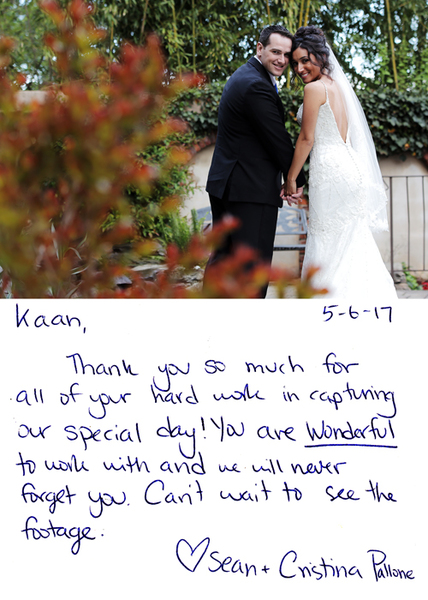 Kaan,
5-6-17
Thank you so much for
all of your hard work in capturing
our special day! You are Wonderful
to work with and we will never
forget you. Can't wait to see the
footage.
♡ Sean + Cristina Pallone